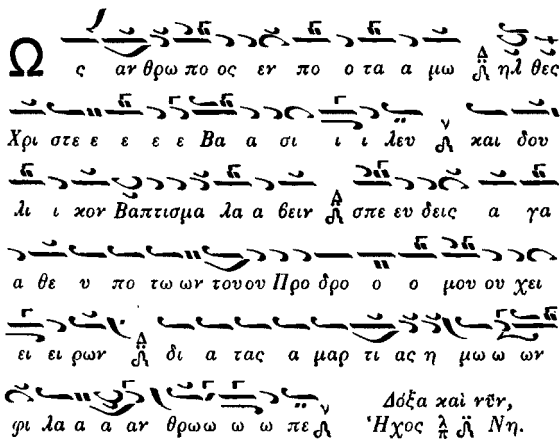 Ω ς αν θρω πο ος εν πο ο τα α μω ηλ θες
Χρι στε ε ε ε ε Βα α σι ι ι λευ και δου
λι ι κον Βαπτισμα λα α βειν σπε ευ δεις α γα
α θε υ πο τω ων του ου Προ δρο ο ο μου ου χει
ει ει ρων δι α τας α μαρ τι ας η μω ω ων
φι λα α α αν θρωω ω ω πε Δόξα καὶ νῦν,
Ἦχος λ π Νη.